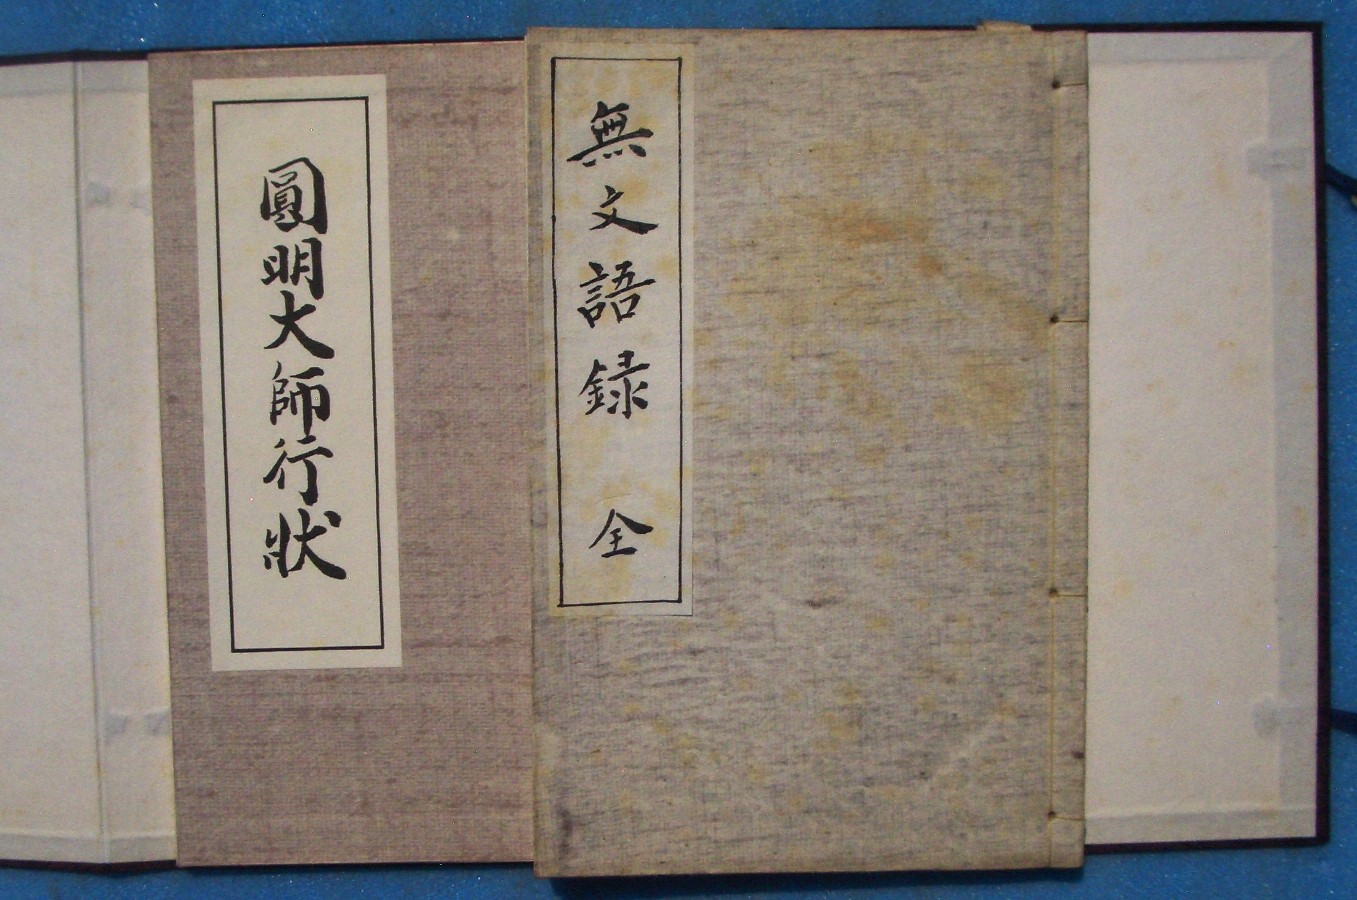 無文語録 全
圓明大師行狀